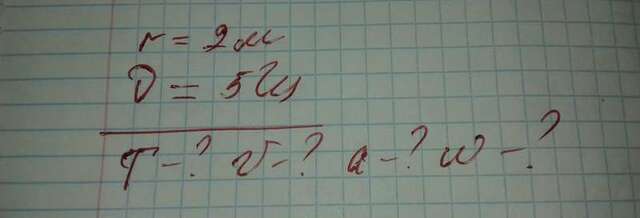 r = 2м
ν = 5Гц
T - ? v - ? a - ? ω - ?